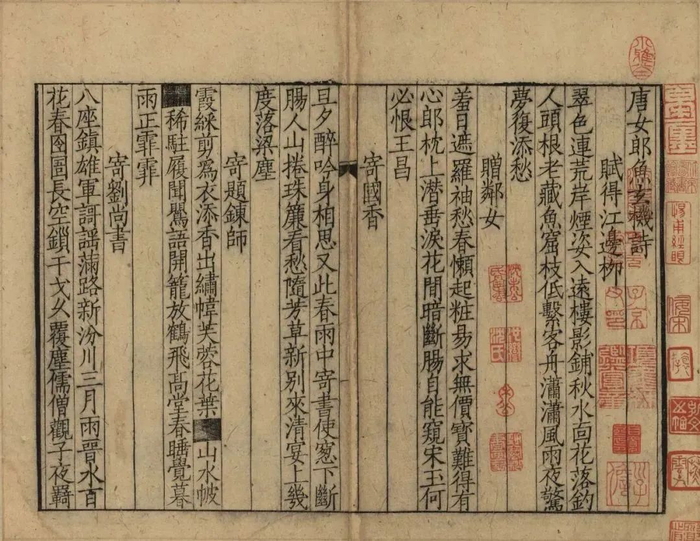 唐女郎魚玄機詩
賦得江邊柳
翠色連荒岸煙姿入遠樓影鋪秋水面花落釣
人頭根老藏魚窟枝低繫客舟瀟瀟風雨夜驚
夢復添愁
贈鄰女
羞日遮羅袖愁春懶起粧易求無價寶難得有
心郎枕上潛垂淚花間暗斷腸自能窺宋玉何
必恨王昌
寄國香
旦夕醉吟身相思又此春雨中寄書使窓下斷
腸人山捲珠簾看愁隨芳草新別來清宴上幾
度落梁塵
寄題鍊師
霞綵剪爲衣添香出繡幃芙蓉花葉山水帔
稀駐履聞鸎語開籠放鶴飛高堂春睡覺暮
雨正霏霏
寄劉尚書
八座鎮雄軍謌謠滿路新汾川三月雨晉水百
花春囹圄長空鎖干戈久覆塵儒僧觀子夜羇